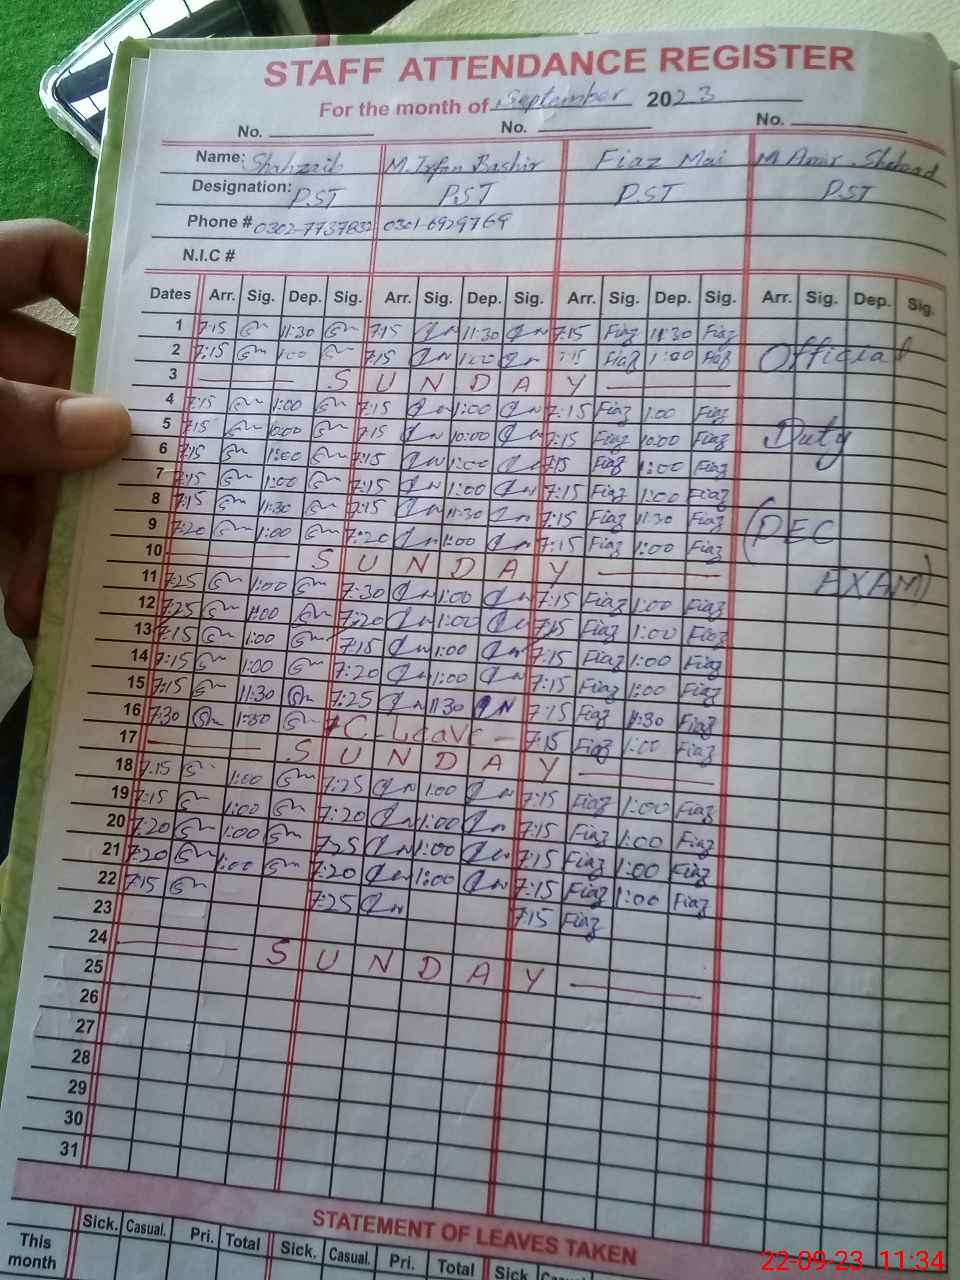 STAFF ATTENDANCE REGISTER
For the month of September 2023
No. No. No.
Name: Shahzaib M. Irfan Bashir Fiaz Mai M Amir Shehzad
Designation: P.ST P.ST P.ST P.ST
Phone # 0302-7737832 0301-6929769
N.I.C #
Dates Arr. Sig. Dep. Sig. Arr. Sig. Dep. Sig. Arr. Sig. Dep. Sig. Arr. Sig. Dep. Sig.
1 7:15 11:30 7:15 11:30 7:15 Fiaz 11:30 Fiaz
2 7:15 1:00 7:15 1:00 7:15 Fiaz 1:00 Fiaz Official
3 S U N D A Y
4 7:15 1:00 7:15 1:00 7:15 Fiaz 1:00 Fiaz
5 7:15 10:00 7:15 10:00 7:15 Fiaz 10:00 Fiaz Duty
6 7:15 1:00 7:15 1:00 7:15 Fiaz 1:00 Fiaz
7 7:15 1:00 7:15 1:00 7:15 Fiaz 1:00 Fiaz
8 7:15 11:30 7:15 11:30 7:15 Fiaz 11:30 Fiaz
9 7:20 1:00 7:20 1:00 7:15 Fiaz 1:00 Fiaz (DEC
10 S U N D A Y
11 7:25 1:00 7:30 1:00 7:15 Fiaz 1:00 Fiaz EXAM)
12 7:25 1:00 7:20 1:00 7:15 Fiaz 1:00 Fiaz
13 7:15 1:00 7:15 1:00 7:15 Fiaz 1:00 Fiaz
14 7:15 1:00 7:20 1:00 7:15 Fiaz 1:00 Fiaz
15 7:15 11:30 7:25 11:30 7:15 Fiaz 11:30 Fiaz
16 7:30 C-Leave 7:15 Fiaz 1:00 Fiaz
17 S U N D A Y
18 7:15 1:00 7:25 1:00 7:15 Fiaz 1:00 Fiaz
19 7:15 1:00 7:20 1:00 7:15 Fiaz 1:00 Fiaz
20 7:20 1:00 7:25 1:00 7:15 Fiaz 1:00 Fiaz
21 7:20 1:00 7:20 1:00 7:15 Fiaz 1:00 Fiaz
22 7:15 7:25 7:15 Fiaz
23
24 S U N D A Y
25
26
27
28
29
30
31
STATEMENT OF LEAVES TAKEN
Sick. Casual. Pri. Total Sick. Casual. Pri. Total Sick Casual.
This month
22-09-23 11:34